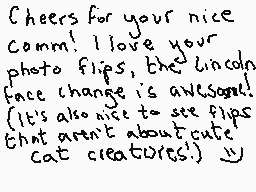 Cheers for your nice
comm! I love your
photo flips, the Lincoln
face change is awesome!
(It's also nice to see flips
that aren't about cute
cat creatures!) =)